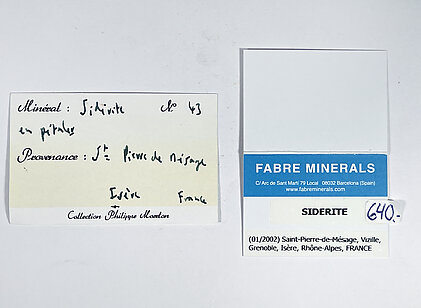 Minéral : Sidérite N° 43
en pétales
Provenance : St Pierre de Mésage
Isère France
Collection Philippe Morelon
FABRE MINERALS
C/Arc de Sant Martí 79 Local 08032 Barcelona (Spain)
www.fabreminerals.com
SIDERITE
640.-
(01/2002) Saint-Pierre-de-Mésage, Vizille,
Grenoble, Isère, Rhône-Alpes, FRANCE